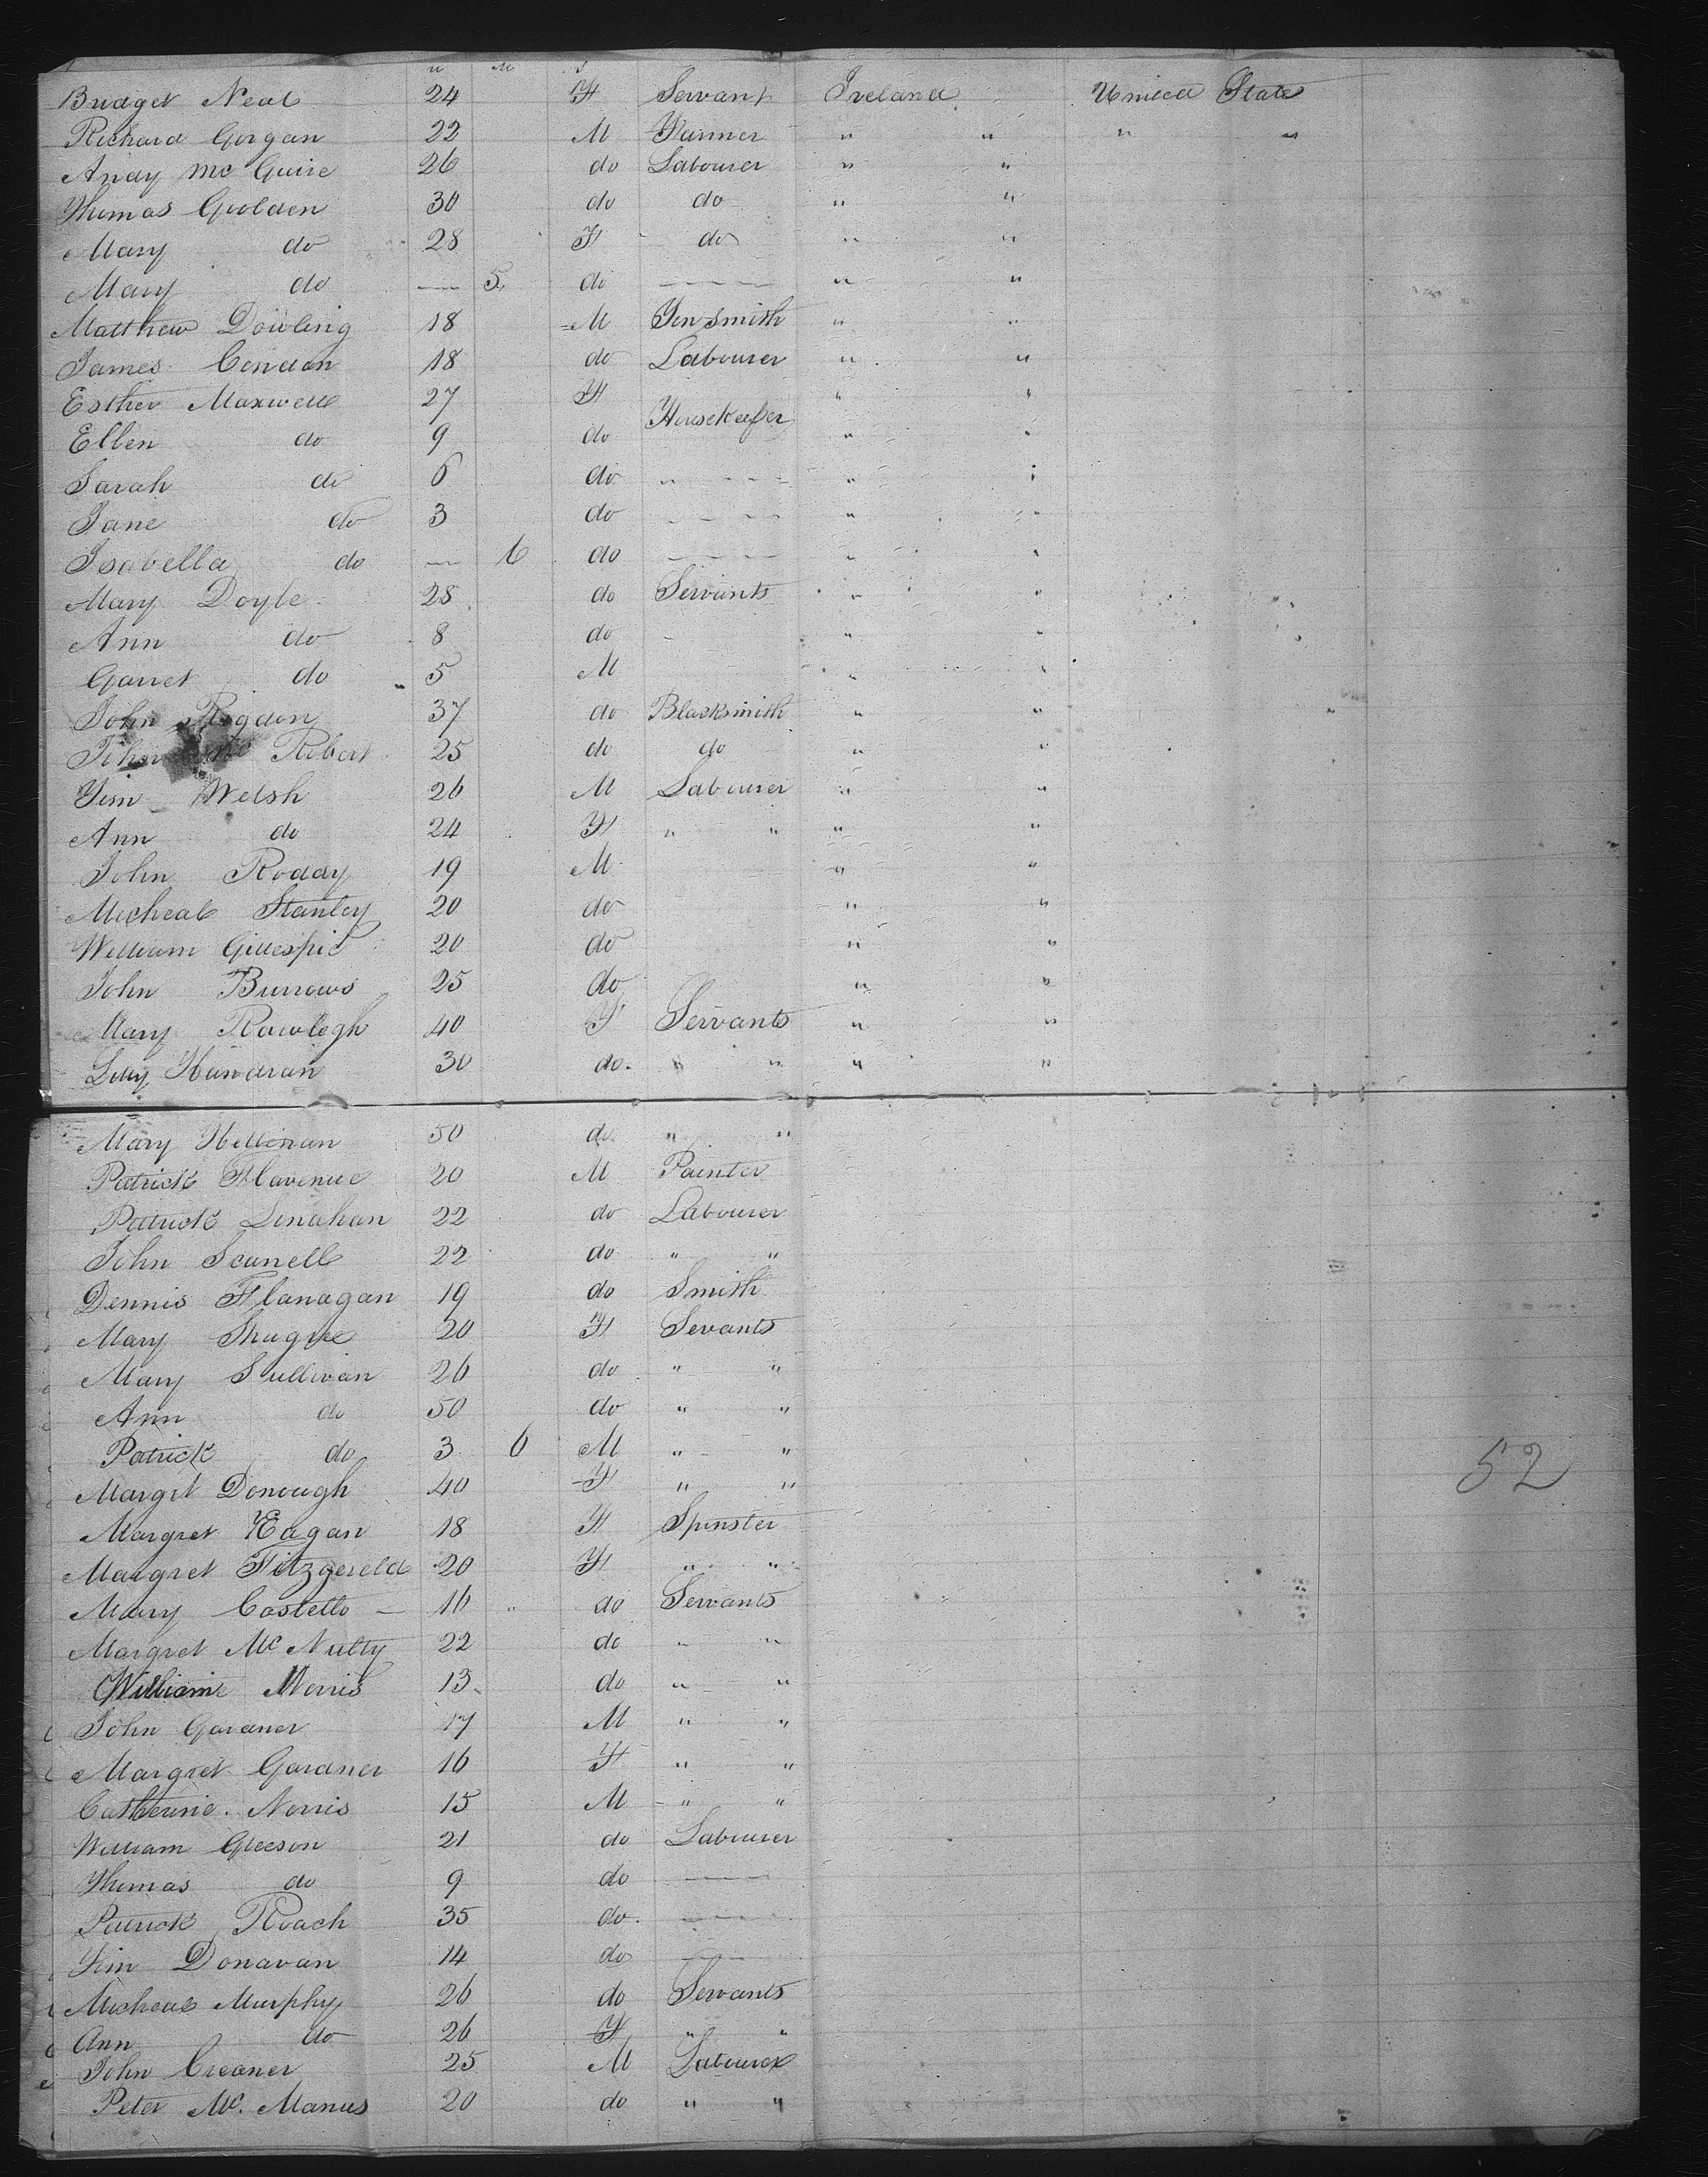 Bridget Neal 24 F Servant Ireland United States
Richard Gorgan 22 M Farmer " " " "
Andy Mc Guire 26 do Labourer " "
Thomas Golden 30 do do " "
Mary do 28 F do " "
Mary do — 5 do — " "
Matthew Dowling 18 M Tin smith " "
James Condon 18 do Labourer " "
Esther Maxwell 27 F Housekeeper " "
Ellen do 9 do " "
Sarah do 6 do " — " "
Jane do 3 do — " "
Isabella do — 6 do — " "
Mary Doyle 28 do Servants " "
Ann do 8 do " "
Garret do 5 M " "
John Rogdon 37 do Blacksmith " "
John Robert 25 do do " "
Tim Welsh 26 M Labourer " "
Ann do 24 F " " " "
John Roddy 19 M " "
Micheal Stanley 20 do " "
William Gillespie 20 do " "
John Burrows 25 do " "
Mary Rawlegh 40 F Servants " "
Lilly Handran 30 do. " " " "
Mary 50 do. " "
Patrick Flavenue 20 M Painter
Patrick Linahan 22 do Labourer
John Scanell 22 do " "
Dennis Flanagan 19 do Smith
Mary Shugrue 20 F Sevants
Mary Sullivan 26 do " "
Ann do 50 do " "
Patrick do 3 6 M " "
Margrt Donough 40 F " "
Margret Eagan 18 F Spinster
Margret Fitzgereld 20 F " "
Mary Costello — 16 do Servants
Margret Mc Nulty 22 do " "
William Norris 13 do " "
John Gardner 17 M " "
Margret Gardner 16 F " "
Catherine Norris 15 M " "
William Gleeson 21 do Labourer
Thomas do 9 do —
Patrick Roach 35 do. —
Tim Donavan 14 do —
Micheal Murphy 26 do Servants
Ann do 26 F " "
John Creaner 25 M Labourer
Peter Mc. Manus 20 do " "
52